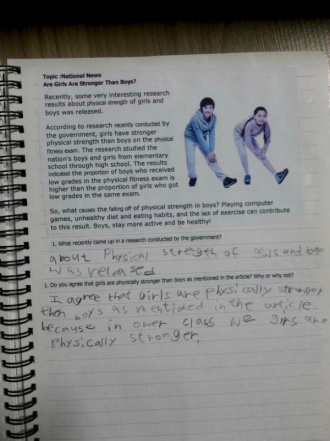 Topic :National News
Are Girls Are Stronger Than Boys?
Recently, some very interesting research
results about physical strength of girls and
boys was released.
According to research recently conducted by
the government, girls have stronger
physical strength than boys on the physical
fitness exam. The research studied the
nation's boys and girls from elementary
school through high school. The results
indicated the proportion of boys who received
low grades in the physical fitness exam is
higher than the proportion of girls who got
low grades in the same exam.
So, what causes the falling off of physical strength in boys? Playing computer
games, unhealthy diet and eating habits, and the lack of exercise can contribute
to this result. Boys, stay more active and be healthy!
1. What recently came up in a research conducted by the government?
about Physical strength of girls and boys
was released
1. Do you agree that girls are physically stronger then boys as mentioned in the article? Why or why not?
I agree that Girls are physically stronger
then boys as mentioned in the article
because in ower class we girs are
physically stronger.